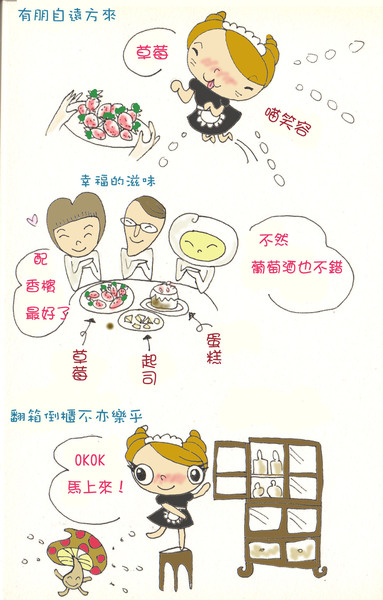 有朋自遠方來
草莓
喵笑容
幸福的滋味
配
香檳
最好了
不然
葡萄酒也不錯
草莓
起司
蛋糕
翻箱倒櫃不亦樂乎
OKOK
馬上來！